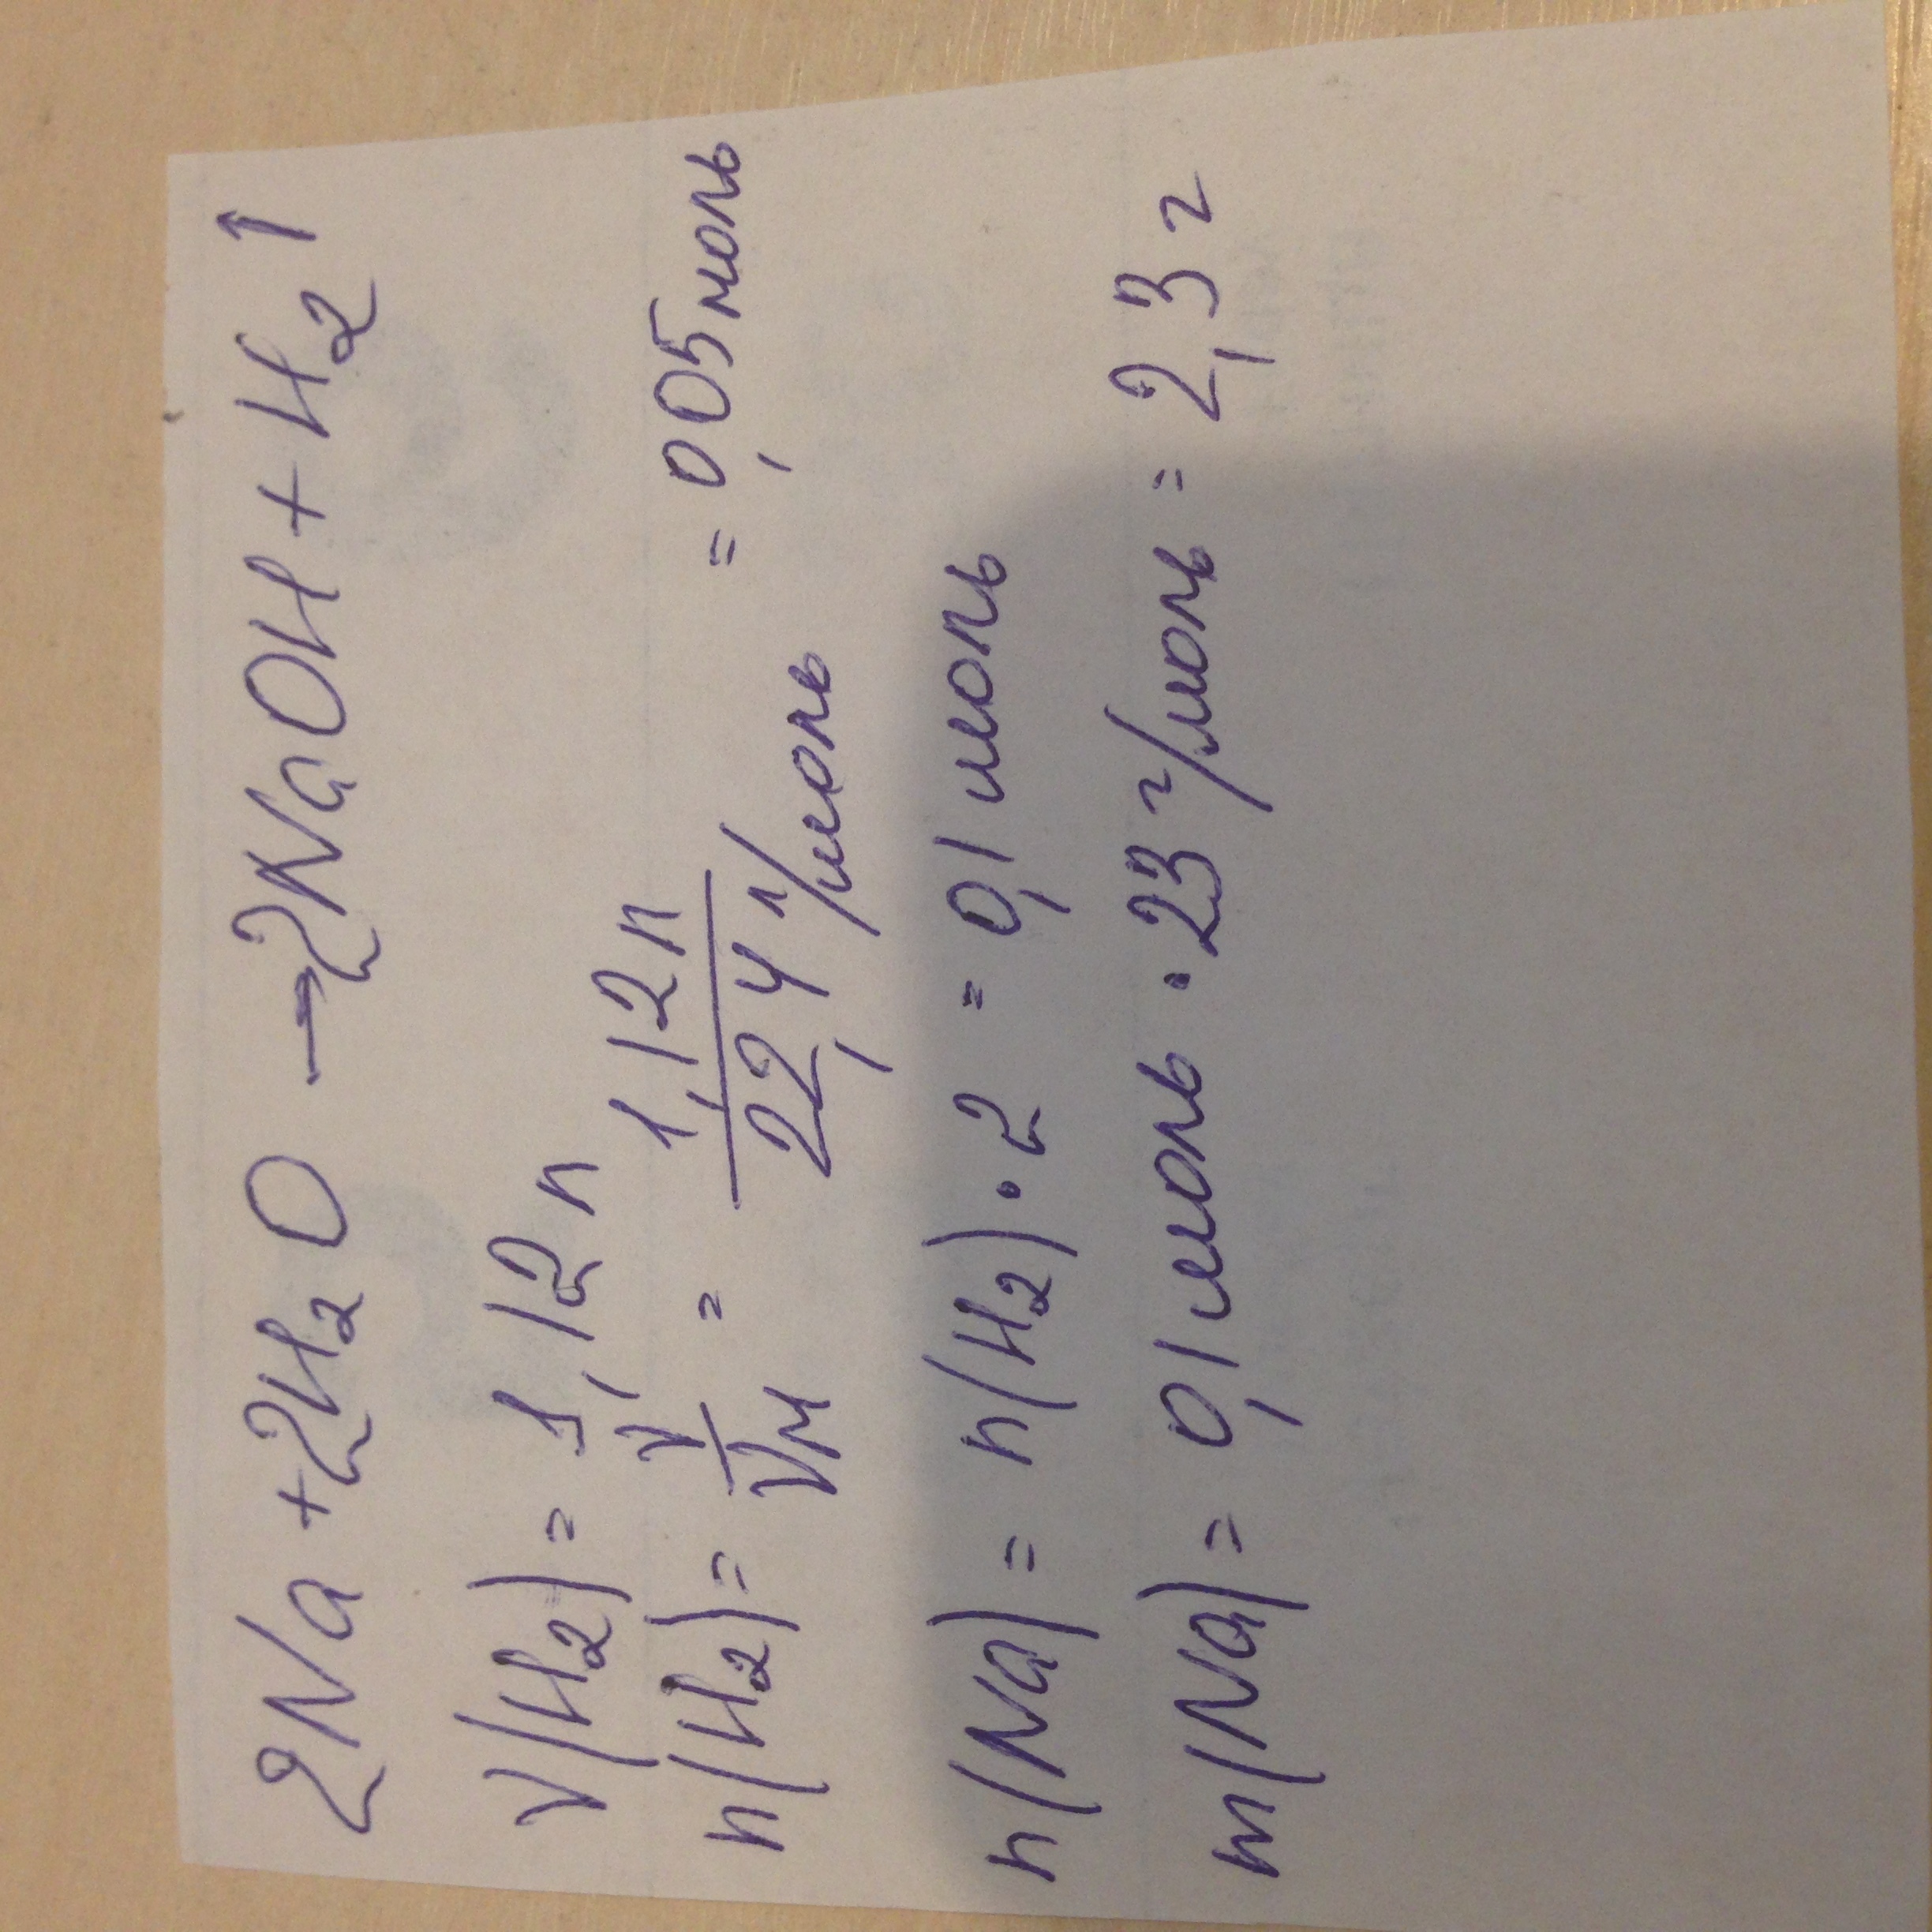 2Na + 2H₂O → 2NaOH + H₂↑
V(H₂) = 1,12 л
n(H₂) = V/Vм = 1,12 л / 22,4 л/моль = 0,05 моль
n(Na) = n(H₂) · 2 = 0,1 моль
m(Na) = 0,1 моль · 23 г/моль = 2,3 г